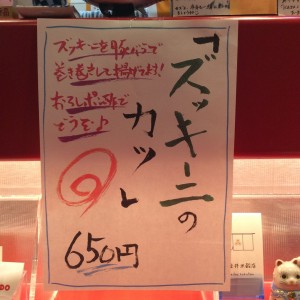 「ズッキーニの
カツ」
ズッキーニを豚バラで
巻き巻きして揚げてます!
おろしポン酢で
どうぞ♪
650円